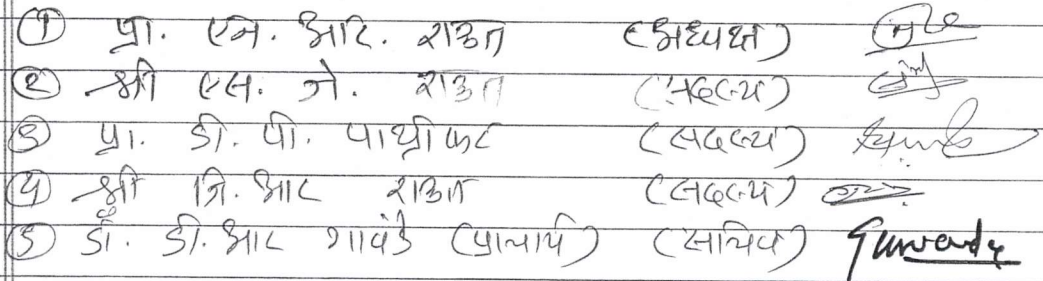 ① प्रा. एन. आर. राऊत (अध्यक्ष)
② श्री एस. जे. राऊत (सदस्य)
③ प्रा. डी. पी. पाथ्रीकर (सदस्य)
④ श्री जि. आर राऊत (सदस्य)
⑤ डॉ. डी. आर गावंडे (प्राचार्य) (सचिव) Gawande